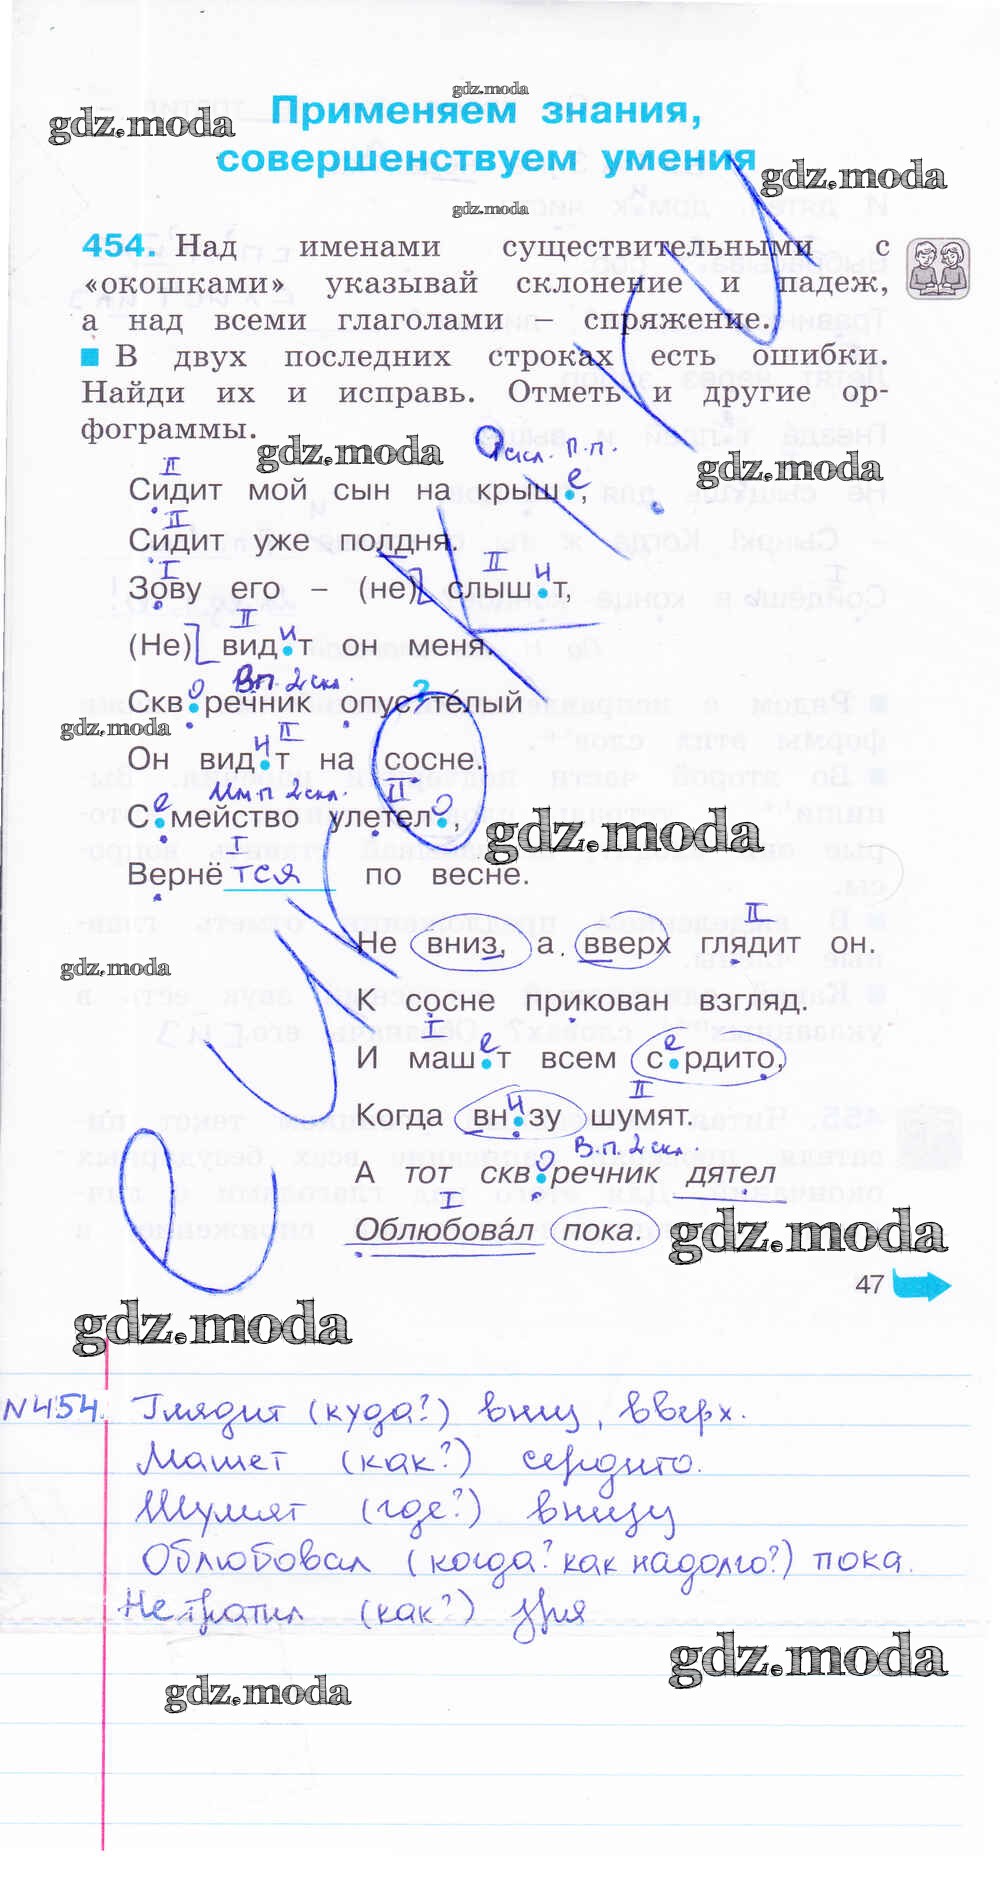 gdz.moda
Применяем знания,
gdz.moda
совершенствуем умения
gdz.moda
gdz.moda
454. Над именами существительными с
«окошками» указывай склонение и падеж,
а над всеми глаголами — спряжение.
В двух последних строках есть ошибки.
Найди их и исправь. Отметь и другие ор-
фограммы.
gdz.moda
gdz.moda
II 1 скл. П.п.
Сидит мой сын на крыше,
II
Сидит уже полдня.
I II
Зову его – (не) слышит,
II
(Не) видит он меня.
В.п. 2 скл. ?
Скворечник опустéлый
gdz.moda
II
Он видит на сосне.
Им.п 2 скл. II
Семейство улетело,
gdz.moda
I
Вернётся по весне.
II
Не вниз, а вверх глядит он.
gdz.moda
К сосне прикован взгляд.
I
И машет всем сердито,
II
Когда внизу шумят.
В.п. 2 скл.
А тот скворечник дятел
I
Облюбовáл пока.
gdz.moda
47
gdz.moda
N454. Глядит (куда?) вниз, вверх.
Машет (как?) сердито.
Шумят (где?) внизу
Облюбовал (когда? как надолго?) пока.
Не тратил (как?) зря
gdz.moda
gdz.moda